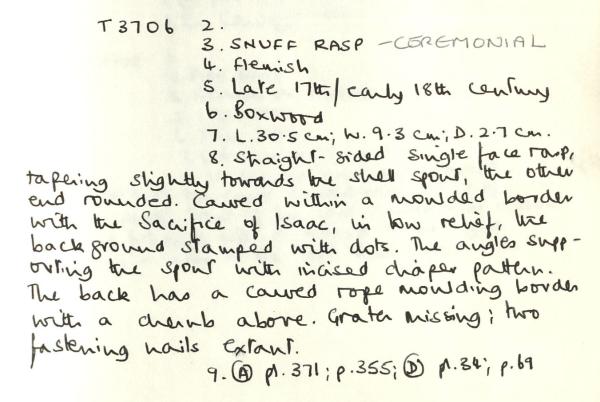 T3706 2.
3. SNUFF RASP - CEREMONIAL
4. Flemish
5. Late 17th/early 18th century
6. Boxwood
7. L. 30.5 cm; W. 9.3 cm; D. 2.7 cm.
8. Straight-sided single face rasp,
tapering slightly towards the shell spout, the other
end rounded. Carved within a moulded border
with the Sacrifice of Isaac, in low relief, the
background stamped with dots. The angles supp-
orting the spout with incised diaper pattern.
The back has a carved rope moulding border
with a cherub above. Grater missing; two
fastening nails extant.
9. (A) pl. 371; p. 355; (D) pl. 34; p. 69